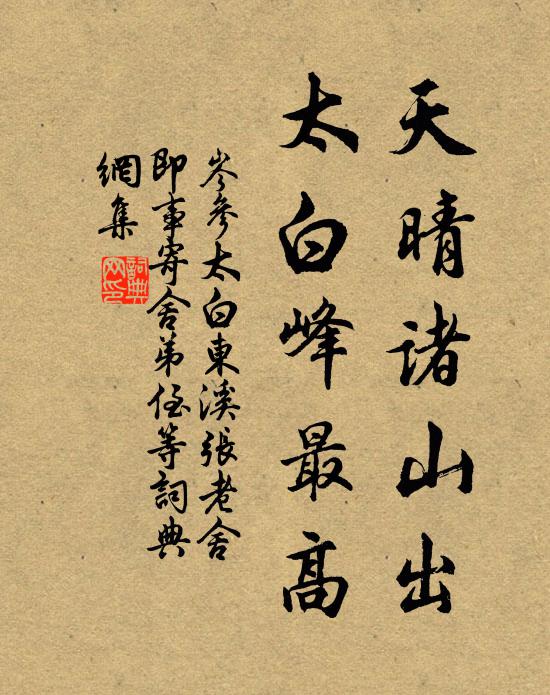 天晴諸山出
太白峰最高
岑參太白東溪張老舍
即事寄舍弟侄等詞典
網集
詞典
网印